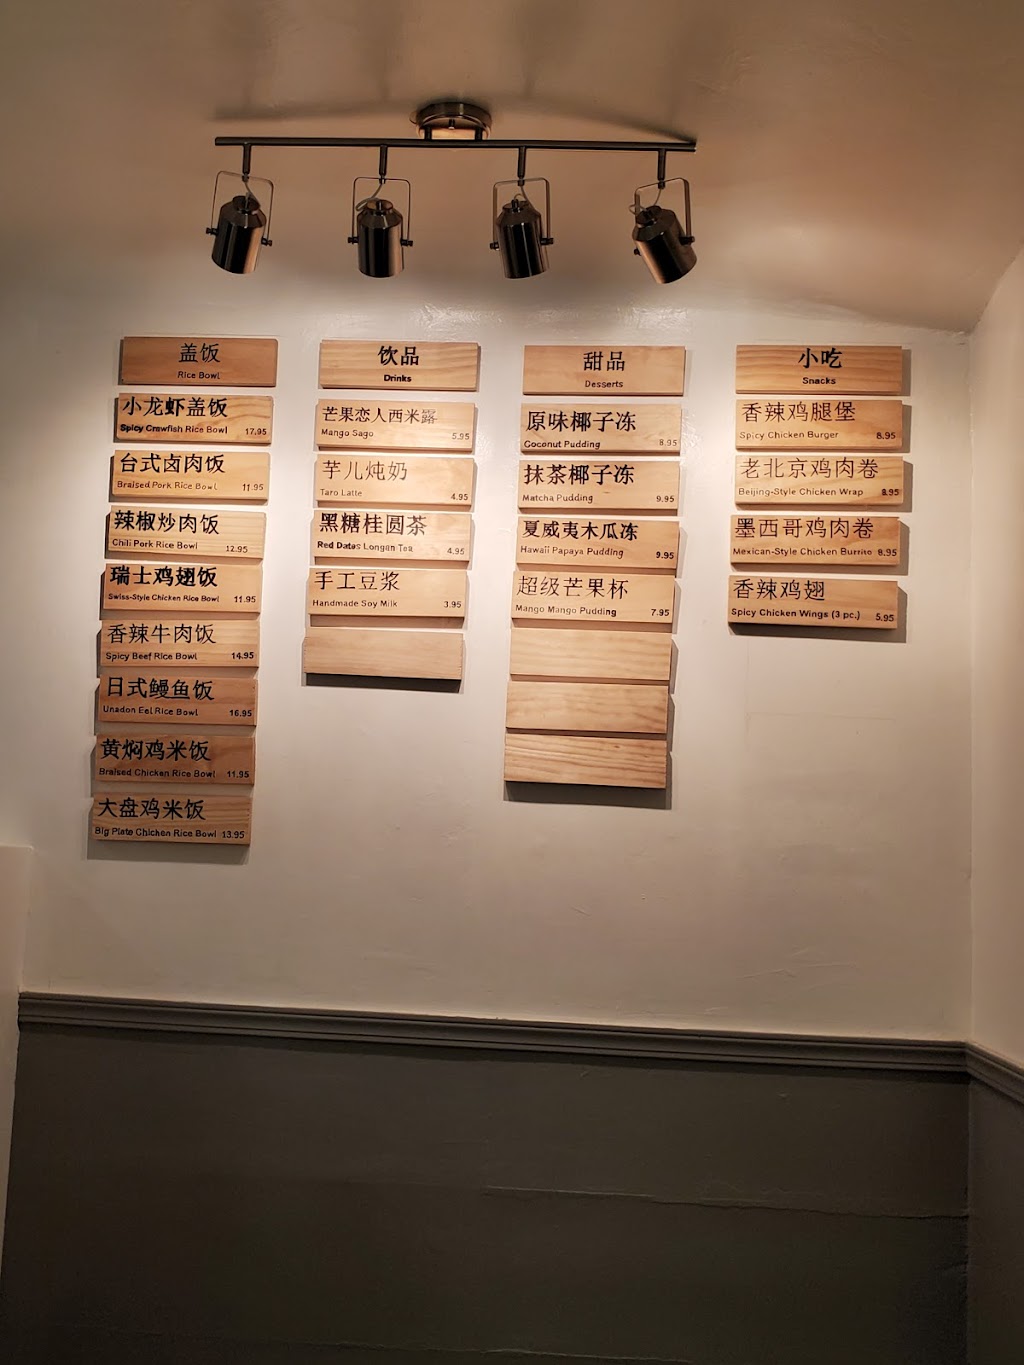 盖饭
Rice Bowl
小龙虾盖饭
Spicy Crawfish Rice Bowl 17.95
台式卤肉饭
Braised Pork Rice Bowl 11.95
辣椒炒肉饭
Chili Pork Rice Bowl 12.95
瑞士鸡翅饭
Swiss-Style Chicken Rice Bowl 11.95
香辣牛肉饭
Spicy Beef Rice Bowl 14.95
日式鳗鱼饭
Unadon Eel Rice Bowl 16.95
黄焖鸡米饭
Braised Chicken Rice Bowl 11.95
大盘鸡米饭
Big Plate Chicken Rice Bowl 13.95
饮品
Drinks
芒果恋人西米露
Mango Sago 5.95
芋儿炖奶
Taro Latte 4.95
黑糖桂圆茶
Red Dates Longan Tea 4.95
手工豆浆
Handmade Soy Milk 3.95
甜品
Desserts
原味椰子冻
Coconut Pudding 8.95
抹茶椰子冻
Matcha Pudding 9.95
夏威夷木瓜冻
Hawaii Papaya Pudding 9.95
超级芒果杯
Mango Mango Pudding 7.95
小吃
Snacks
香辣鸡腿堡
Spicy Chicken Burger 8.95
老北京鸡肉卷
Beijing-Style Chicken Wrap 8.95
墨西哥鸡肉卷
Mexican-Style Chicken Burrito 8.95
香辣鸡翅
Spicy Chicken Wings (3 pc.) 5.95